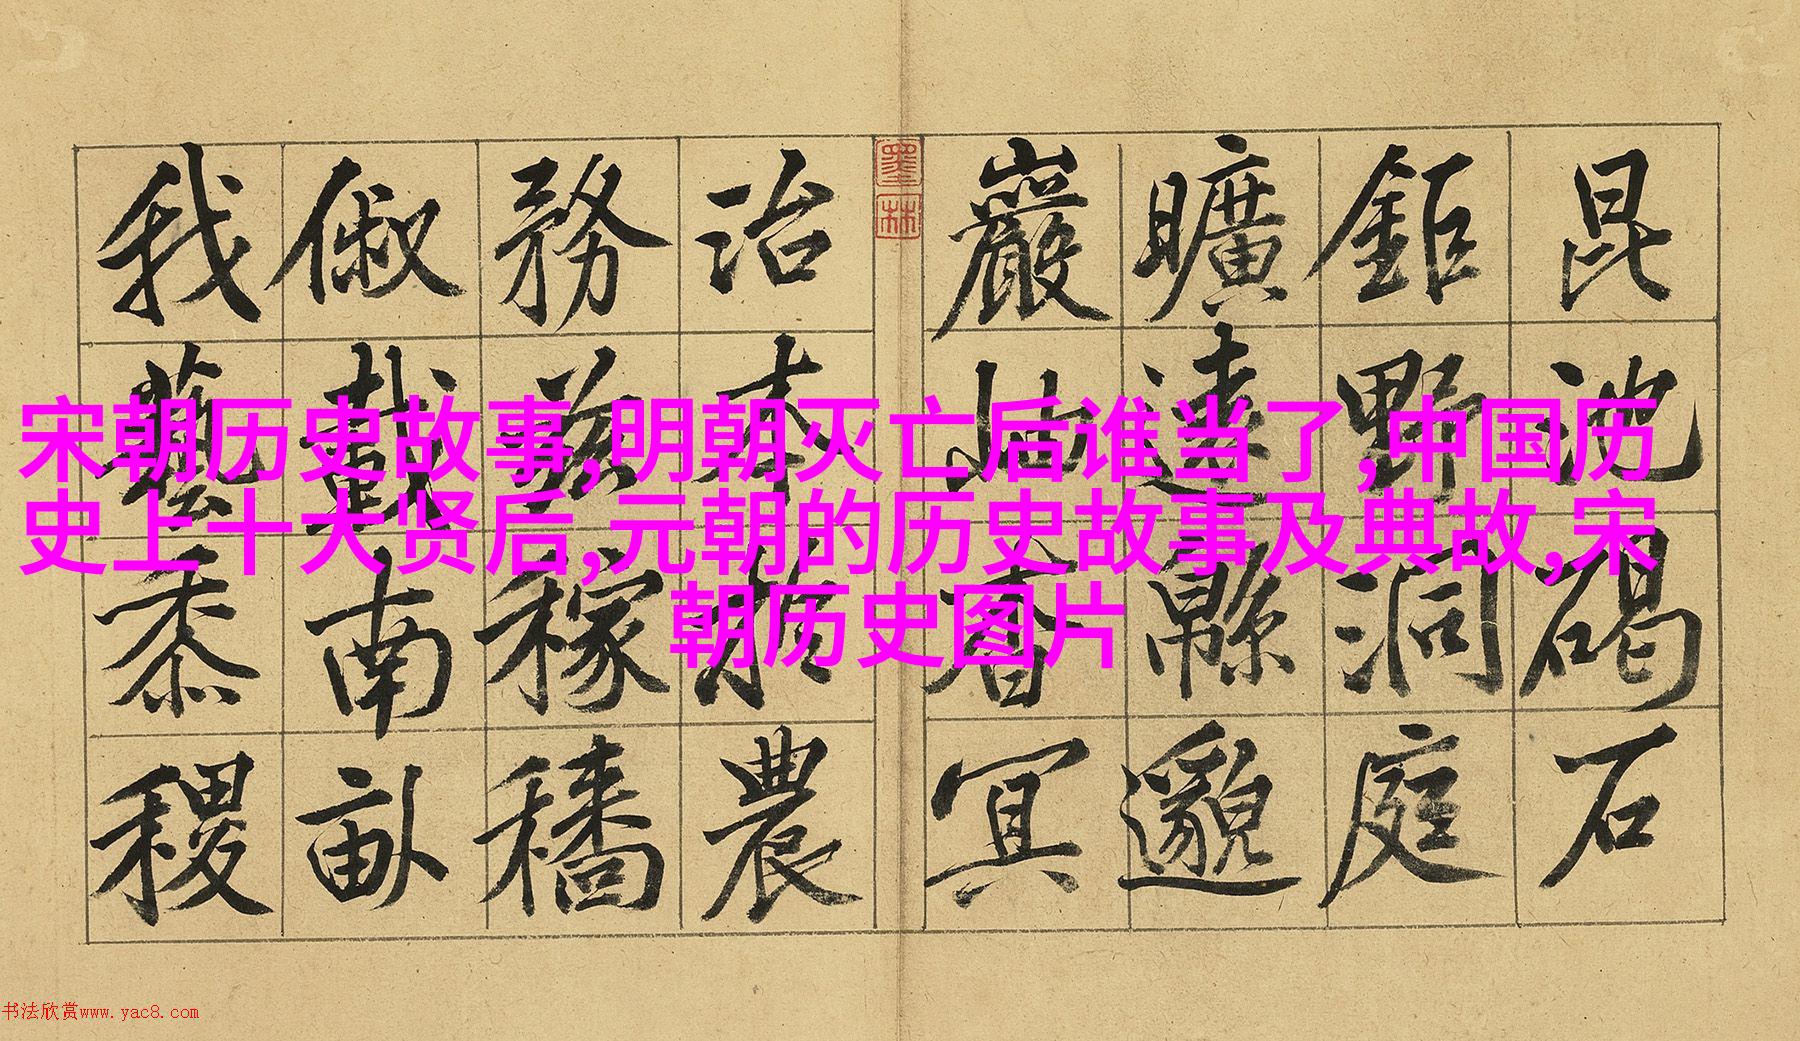 昆池碣石
鉅野洞庭
曠遠緜邈
巖岫杳冥
治本於農
務茲稼穡
俶載南畝
我藝黍稷
墨林
宋朝历史故事,明朝灭亡后谁当了,中国历
史上十大贤后,元朝的历史故事及典故,宋
朝历史图片
书法欣赏www.yac8.com